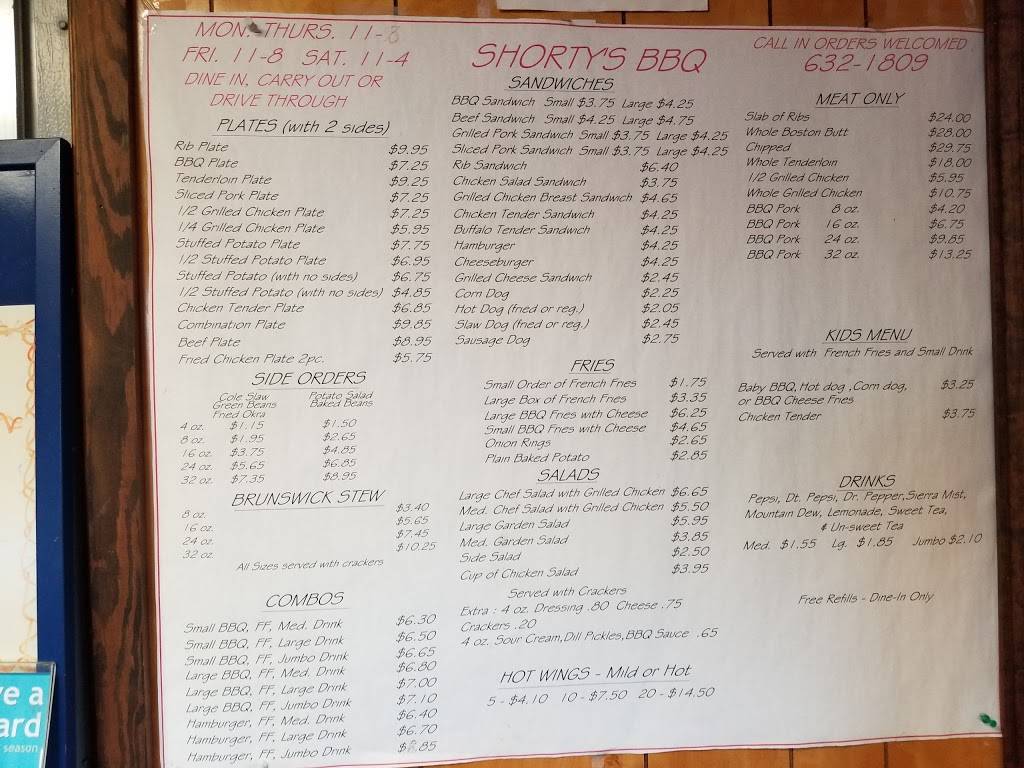 MON. THURS. 11-8
FRI. 11-8 SAT. 11-4
DINE IN, CARRY OUT OR
DRIVE THROUGH
PLATES (with 2 sides)
Rib Plate $9.95
BBQ Plate $7.25
Tenderloin Plate $9.25
Sliced Pork Plate $7.25
1/2 Grilled Chicken Plate $7.25
1/4 Grilled Chicken Plate $5.95
Stuffed Potato Plate $7.75
1/2 Stuffed Potato Plate $6.95
Stuffed Potato (with no sides) $6.75
1/2 Stuffed Potato (with no sides) $4.85
Chicken Tender Plate $6.85
Combination Plate $9.85
Beef Plate $8.95
Fried Chicken Plate 2pc. $5.75
SIDE ORDERS
Cole Slaw Potato Salad
Green Beans Baked Beans
Fried Okra
4 oz. $1.15 $1.50
8 oz. $1.95 $2.65
16 oz. $3.75 $4.85
24 oz. $5.65 $6.85
32 oz. $7.35 $8.95
BRUNSWICK STEW
8 oz. $3.40
16 oz. $5.65
24 oz. $7.45
32 oz. $10.25
All Sizes served with crackers
COMBOS
Small BBQ, FF, Med. Drink $6.30
Small BBQ, FF, Large Drink $6.50
Small BBQ, FF, Jumbo Drink $6.65
Large BBQ, FF, Med. Drink $6.80
Large BBQ, FF, Large Drink $7.00
Large BBQ, FF, Jumbo Drink $7.10
Hamburger, FF, Med. Drink $6.40
Hamburger, FF, Large Drink $6.70
Hamburger, FF, Jumbo Drink $6.85
SHORTY'S BBQ
SANDWICHES
BBQ Sandwich Small $3.75 Large $4.25
Beef Sandwich Small $4.25 Large $4.75
Grilled Pork Sandwich Small $3.75 Large $4.25
Sliced Pork Sandwich Small $3.75 Large $4.25
Rib Sandwich $6.40
Chicken Salad Sandwich $3.75
Grilled Chicken Breast Sandwich $4.65
Chicken Tender Sandwich $4.25
Buffalo Tender Sandwich $4.25
Hamburger $4.25
Cheeseburger $4.25
Grilled Cheese Sandwich $2.45
Corn Dog $2.25
Hot Dog (fried or reg.) $2.05
Slaw Dog (fried or reg.) $2.45
Sausage Dog $2.75
FRIES
Small Order of French Fries $1.75
Large Box of French Fries $3.35
Large BBQ Fries with Cheese $6.25
Small BBQ Fries with Cheese $4.65
Onion Rings $2.65
Plain Baked Potato $2.85
SALADS
Large Chef Salad with Grilled Chicken $6.65
Med. Chef Salad with Grilled Chicken $5.50
Large Garden Salad $5.95
Med. Garden Salad $3.85
Side Salad $2.50
Cup of Chicken Salad $3.95
Served with Crackers
Extra : 4 oz. Dressing .80 Cheese .75
Crackers .20
4 oz. Sour Cream,Dill Pickles,BBQ Sauce .65
HOT WINGS - Mild or Hot
5 - $4.10 10 - $7.50 20 - $14.50
CALL IN ORDERS WELCOMED
632-1809
MEAT ONLY
Slab of Ribs $24.00
Whole Boston Butt $28.00
Chipped $29.75
Whole Tenderloin $18.00
1/2 Grilled Chicken $5.95
Whole Grilled Chicken $10.75
BBQ Pork 8 oz. $4.20
BBQ Pork 16 oz. $6.75
BBQ Pork 24 oz. $9.85
BBQ Pork 32 oz. $13.25
KIDS MENU
Served with French Fries and Small Drink
Baby BBQ, Hot dog ,Corn dog, $3.25
or BBQ Cheese Fries
Chicken Tender $3.75
DRINKS
Pepsi, Dt. Pepsi, Dr. Pepper,Sierra Mist,
Mountain Dew, Lemonade, Sweet Tea,
& Un-sweet Tea
Med. $1.55 Lg. $1.85 Jumbo $2.10
Free Refills - Dine-In Only
ve a
ard
season